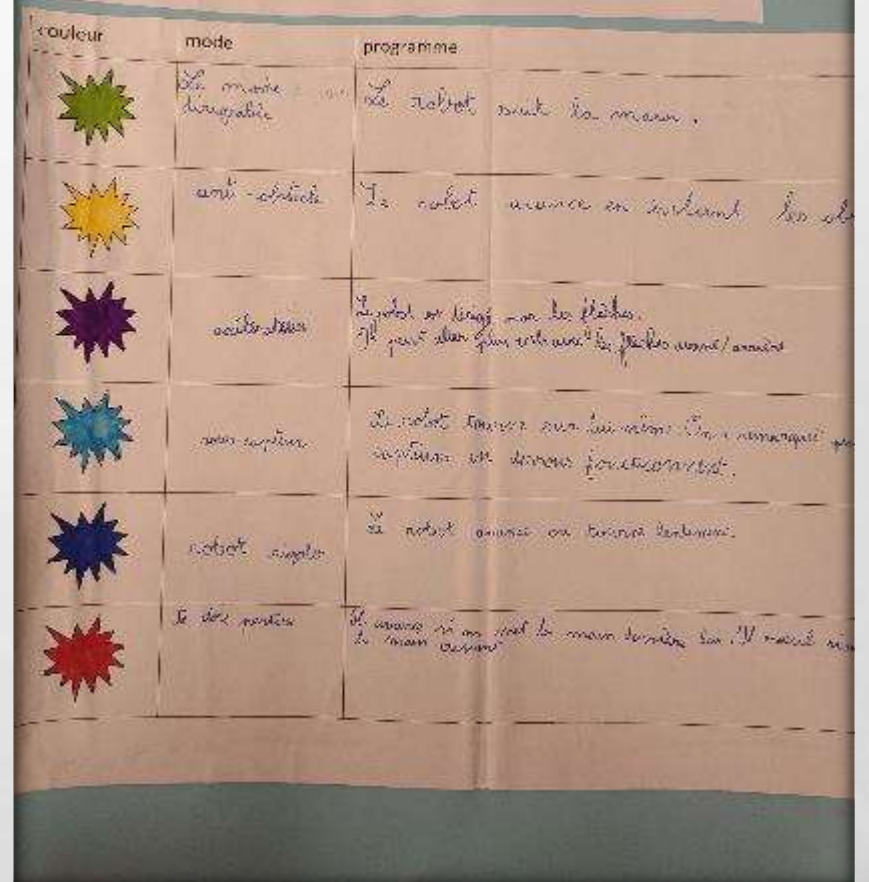 couleur
mode
programme
Le mode
dirigeable
Le robot suit la main.
anti-obstacle
Le robot avance en évitant les obs
Le robot est dirigé par les flèches.
Il peut aller plus vite avec les flèches avant/arrière
sous-capteur
Le robot tourne sur lui même. On a remarqué
capteurs en dessous fonctionnent.
robot
Le robot avance ou tourne lentement.
Il avance si on met la main derrière lui. Il recule si
la main devant